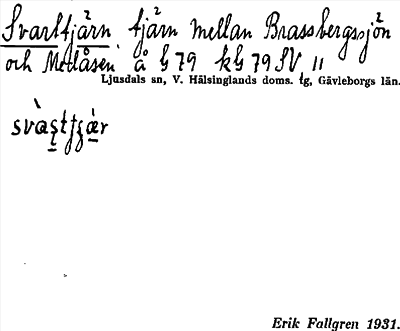 Svarttjärn tjärn mellan Brassbergssjön
och Metlåsen å G 79 kG 79 SV 11
Ljusdals sn, V. Hälsinglands doms. tg, Gävleborgs län.
Erik Fallgren 1931.